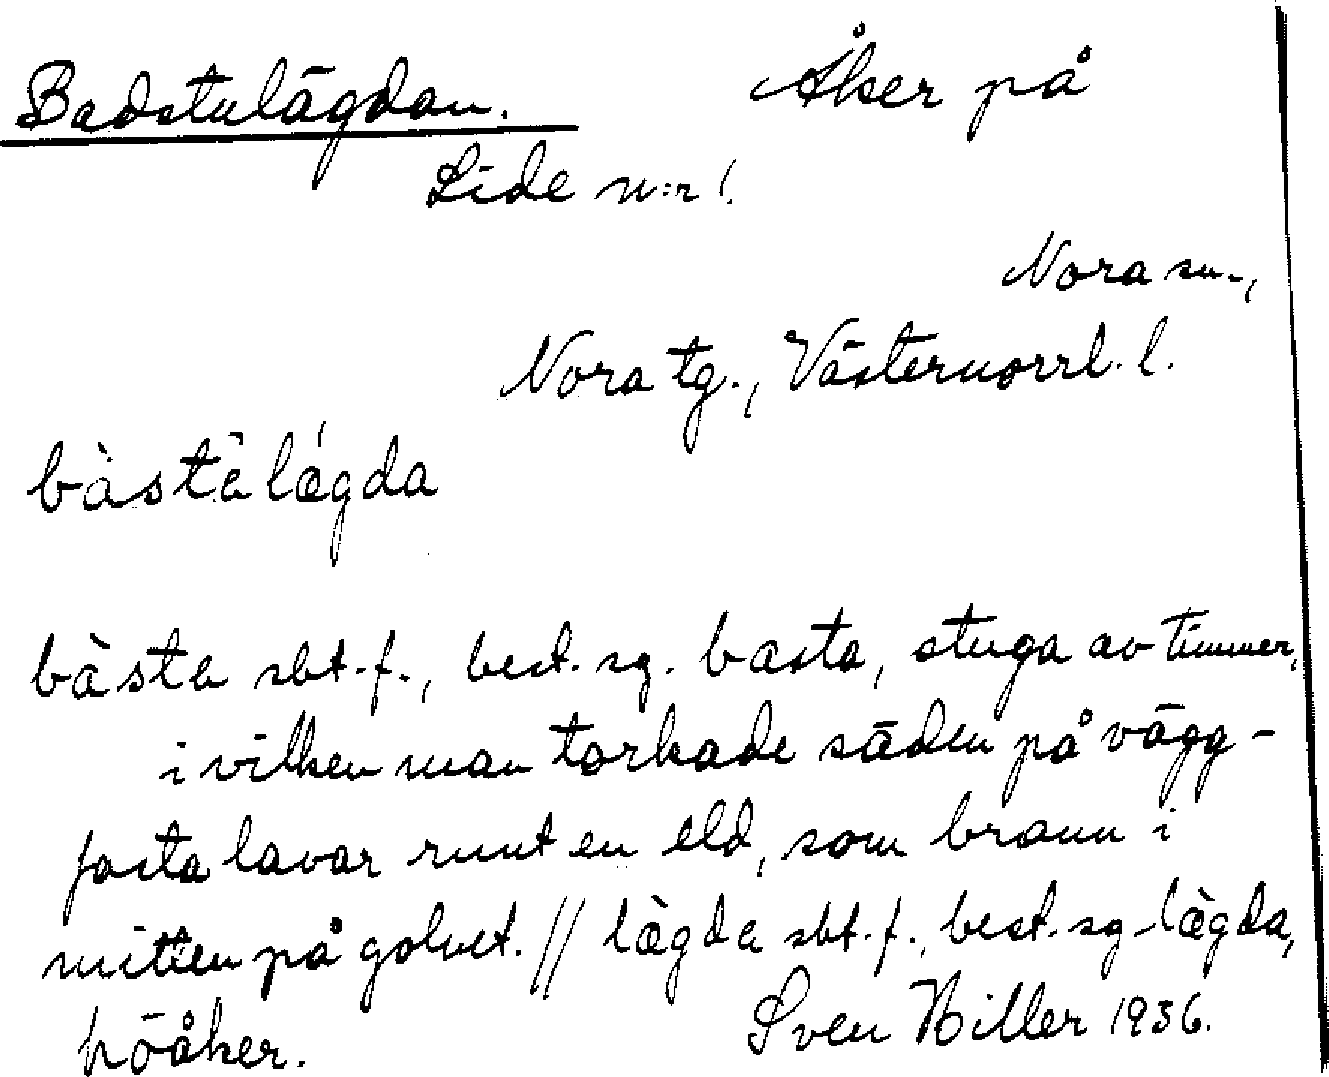 Badstulägdan. Åker på
Lide n:r 1.
Nora sn.,
Nora tg., Västernorrl. l.
bàstè lǽgda
bàste sbt. f., best. sg. basta, stuga av timmer,
i vilken man torkade säden på vägg-
fasta lavar runt en eld, som brann i
mitten på golvet. // læ̀gde sbt. f., best. sg. læ̀gda,
höåker. Sven Hiller 1936.